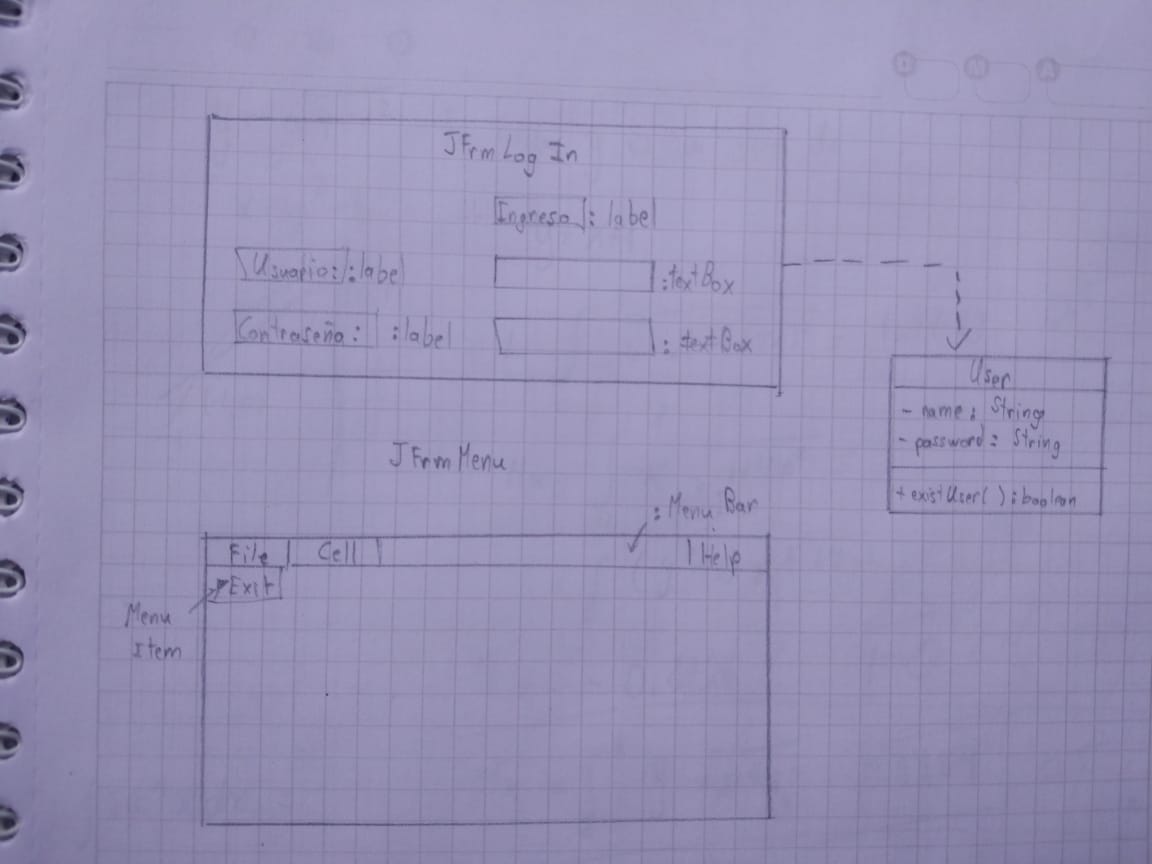 JFrm Log In
Ingreso : label
Usuario: : label
: textBox
Contraseña: : label
: textBox
User
- name: String
- password: String
+ existUser( ): boolean
JFrm Menu
: Menu Bar
File Cell Help
Exit
Menu
Item